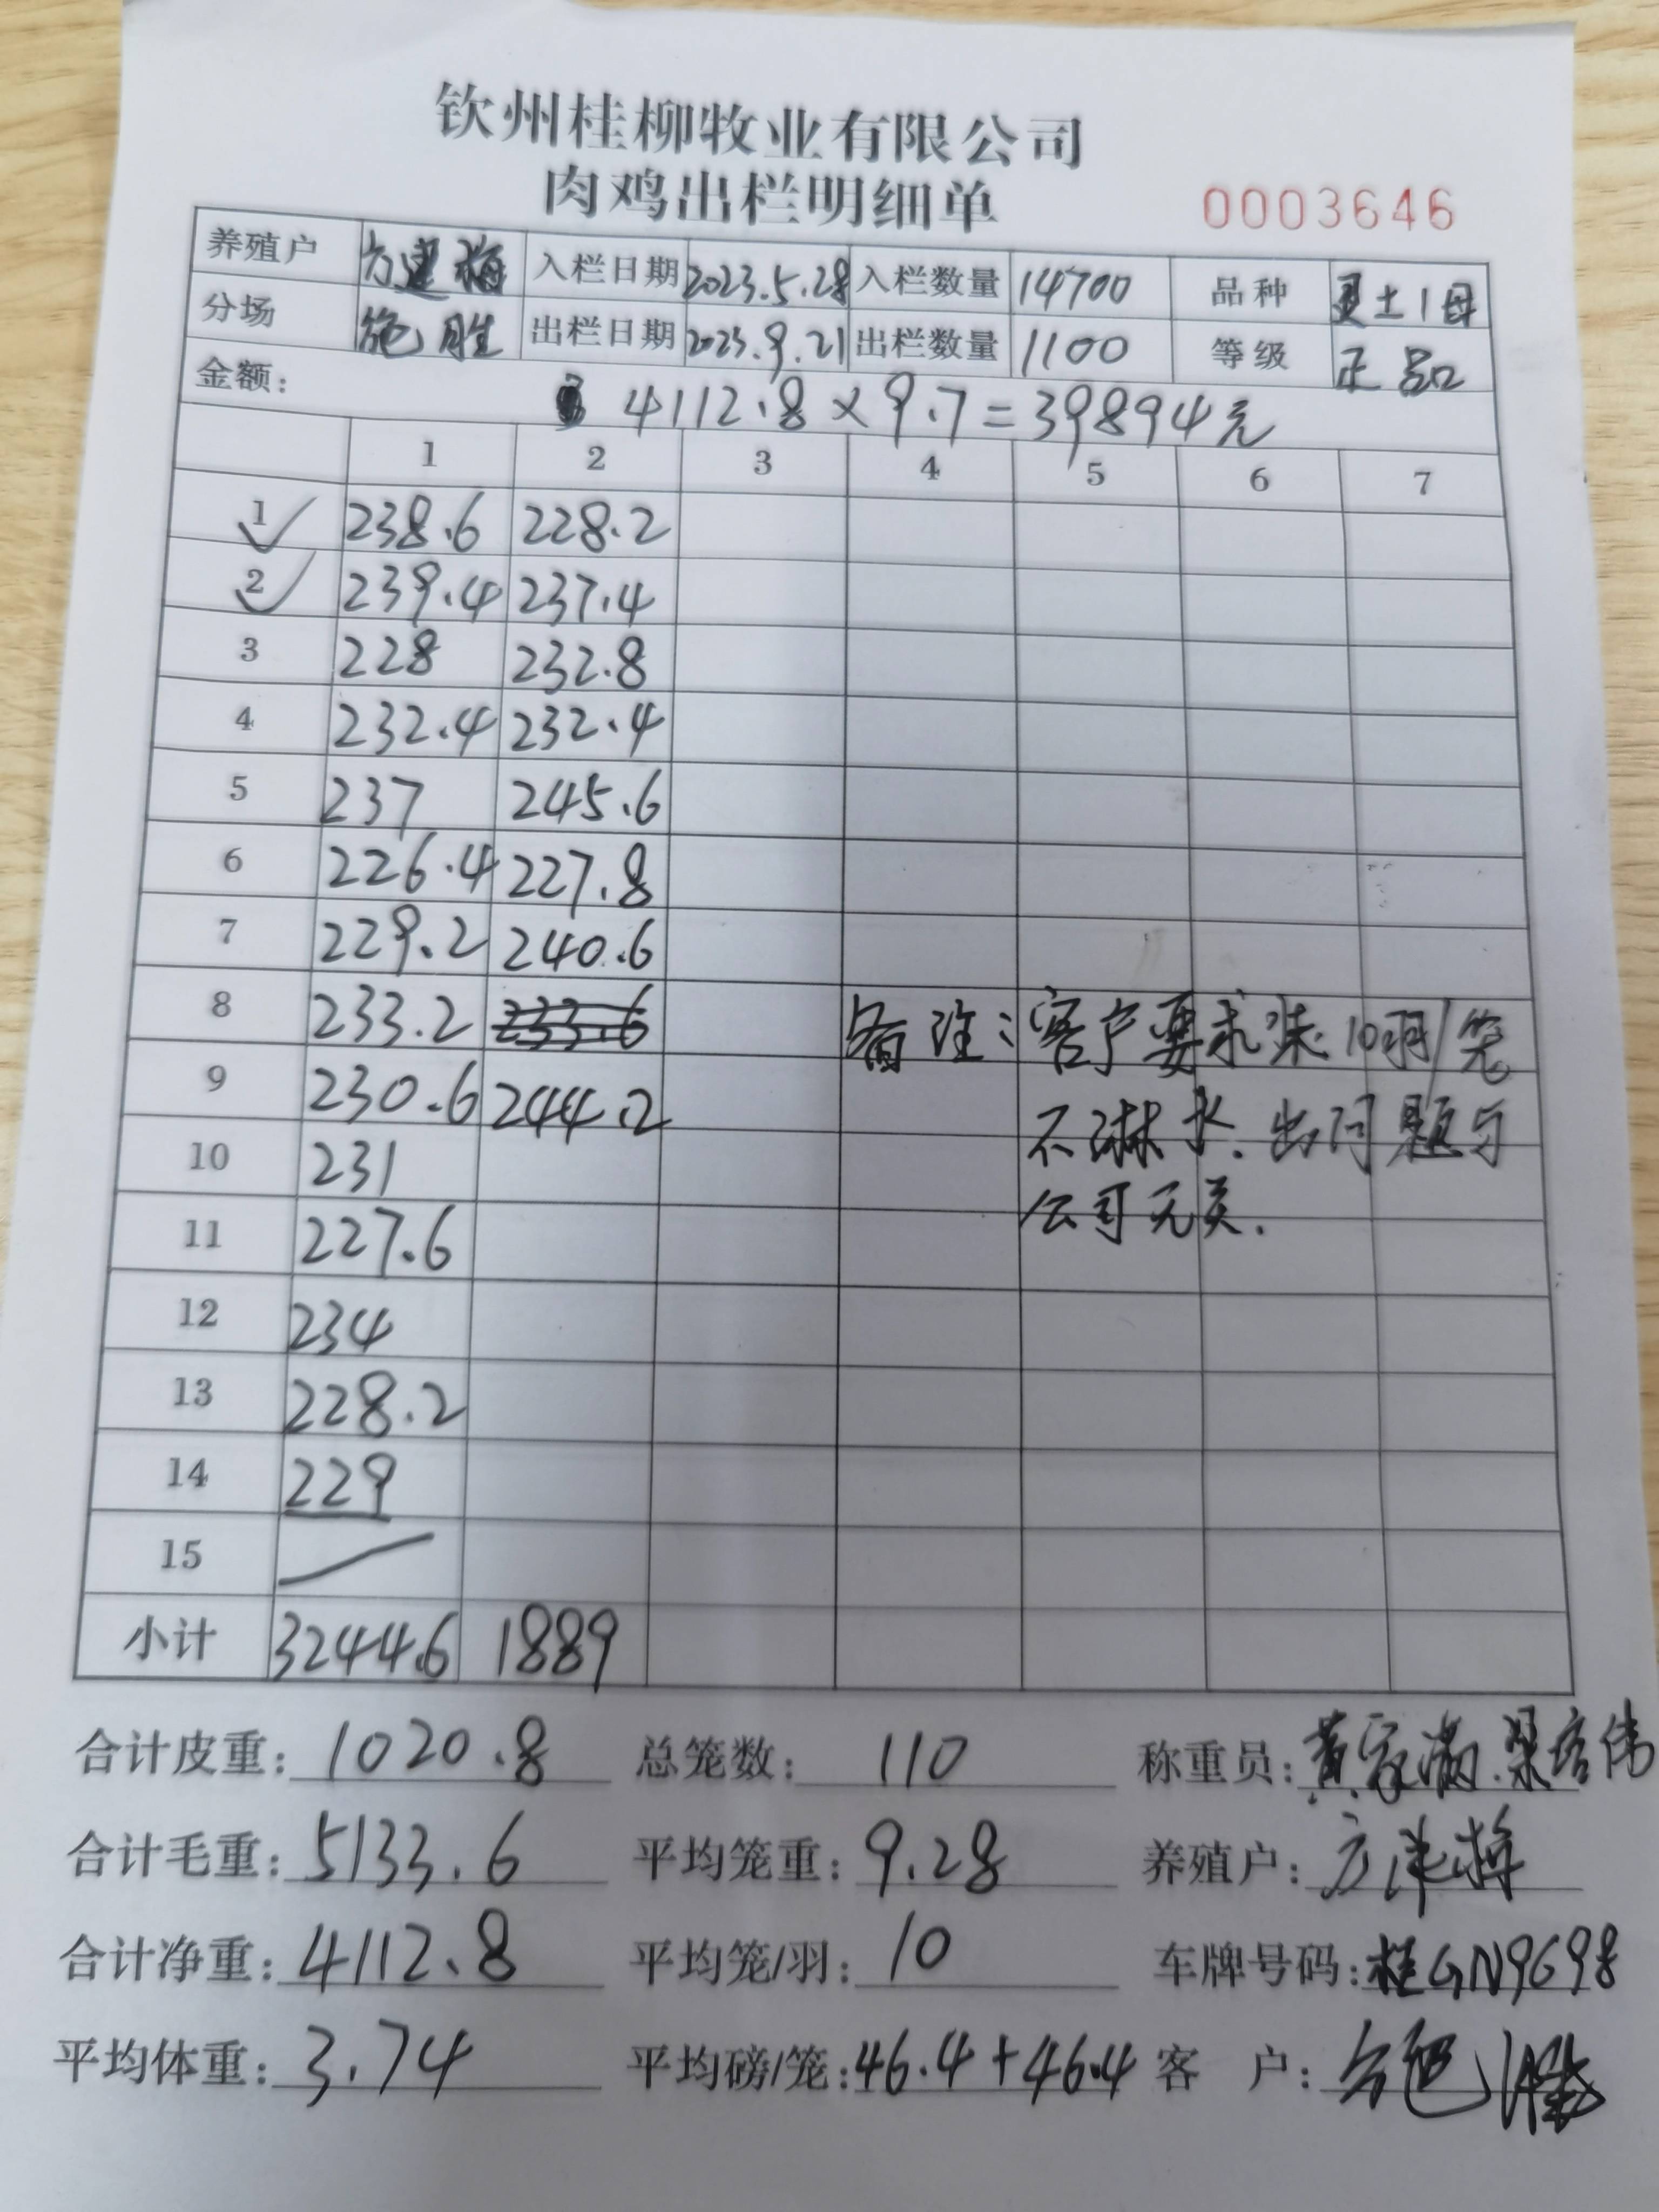 钦州桂柳牧业有限公司
肉鸡出栏明细单 0003646
养殖户 方建梅 入栏日期 2023.5.28 入栏数量 14700 品种 灵土1母
分场 施胜 出栏日期 2023.9.21 出栏数量 1100 等级 正品
金额: 4112.8×9.7=39894元
1 2 3 4 5 6 7
1 238.6 228.2
2 239.4 237.4
3 228 232.8
4 232.4 232.4
5 237 245.6
6 226.4 227.8
7 229.2 240.6
8 233.2 233.6 备注:客户要求装10羽/笼
9 230.6 244.2 不淋水.出问题与
10 231 公司无关.
11 227.6
12 234
13 228.2
14 229
15
小计 3244.6 1889
合计皮重: 1020.8 总笼数: 110 称重员: 黄家满.梁培伟
合计毛重: 5133.6 平均笼重: 9.28 养殖户:
合计净重: 4112.8 平均笼/羽: 10 车牌号码: 桂GN9698
平均体重: 3.74 平均磅/笼: 46.4+46.4 客 户: